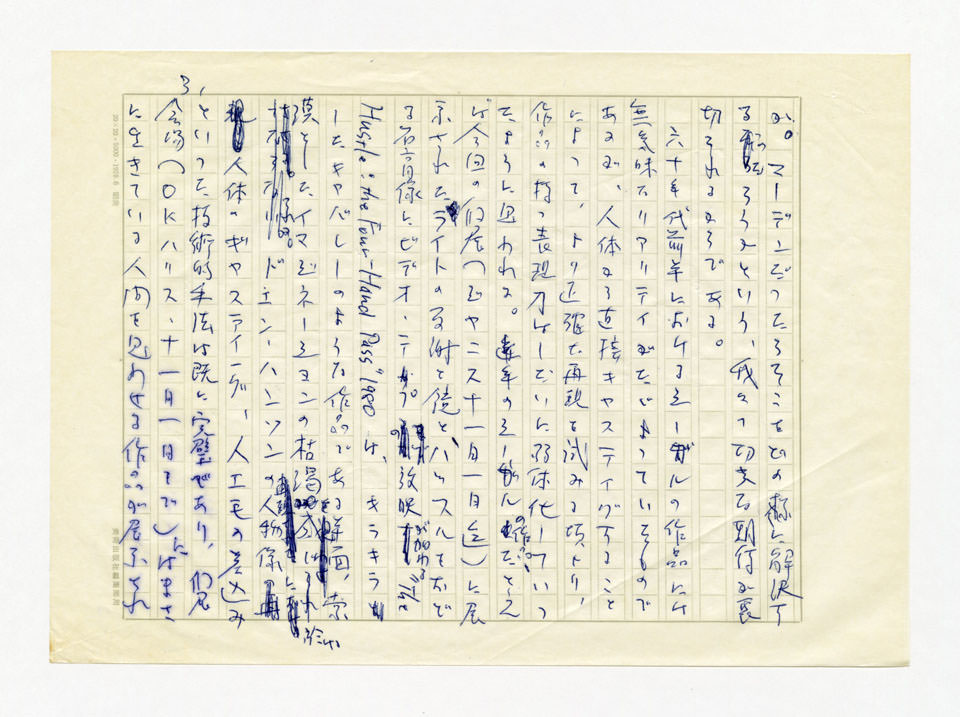 が。マーデンだったらそこをどの様に解決す
るだろうかという、我々の切実な期待が裏
切られるからである。
六十年代前半におけるシーガルの作品には
無気味なリアリティがただよっていたもので
あるが、人体から直接キャスティングすること
によって、より正確な再現を試みる頃より、
作品の持つ表現力はしだいに弱体化していっ
たように思われる。シーガルの作品だとえ
ば今回の個展(ジャニス十一月一日迄)に展
示されたライトの反射と鏡とハッスルをおど
る石膏像にビデオ・テープの放映が加わる "The
Hustle: the Four-Hand Pass" 1980 は、キラキラ
したキャバレーのような作品である半面、索
漠としたイマジネーションの枯渇を感じられ
ドエン・ハンソンの人物像
人体のキャスティング、人工毛の差込み
といった技術的手法は既に完璧であり、個展
会場(OKハリス、十一月一日まで)にはまさ
に生きている人間を思わせる作品が展示され
3,
20×20